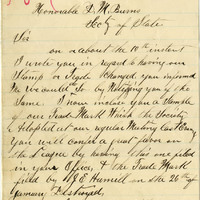 Honorable D. M. Burns
Secty of State
Sir
on or about the 10th instant
I wrote you in regard to having our
Stamp or Seal Changed you informed
me we could do by Notifying you of the
Same. I now inclose you a Sample
of our Trade Mark Which the Society
adopted at our regular Meeting last Evening
You will confer a great favor on
the League by having this one filed
in your Office, & the Trade Mark
filed by B. E. Hunnell on the 26th of
January Destroyed